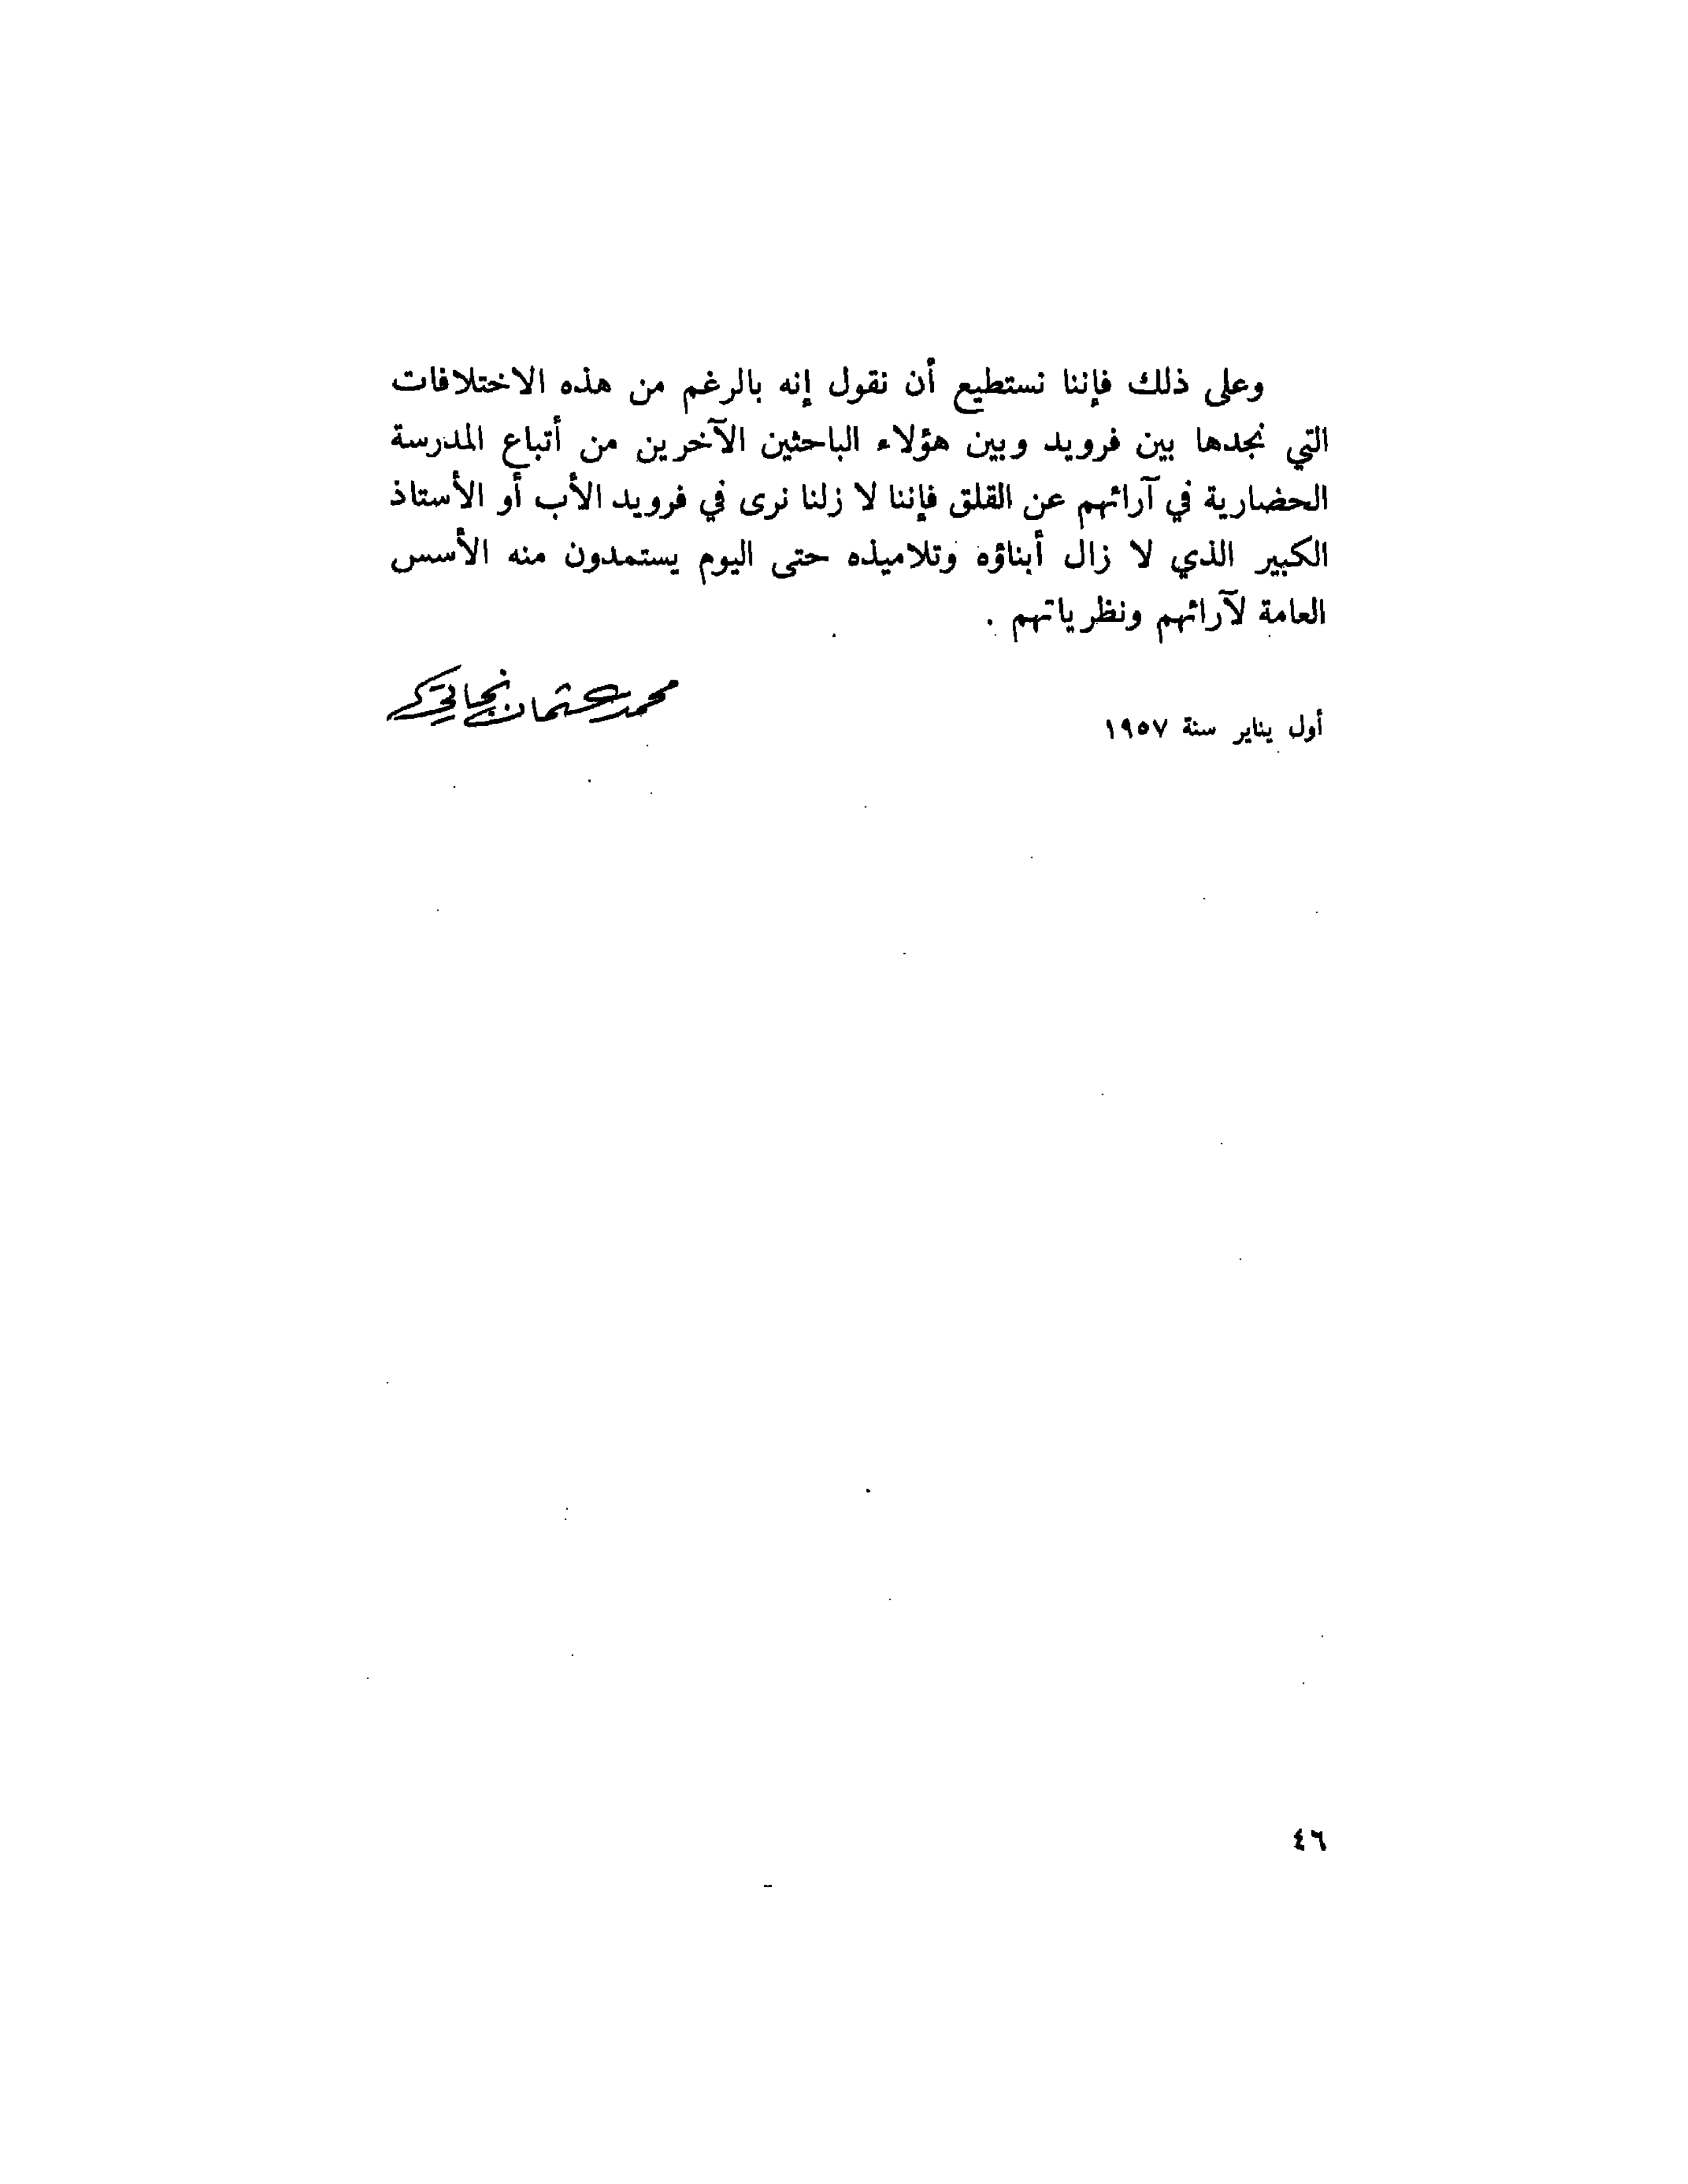 وعلى ذلك فإننا نستطيع أن نقول إنه بالرغم من هذه الاختلافات
التي نجدها بين فرويد وبين هؤلاء الباحثين الآخرين من أتباع المدرسة
الحضارية في آرائهم عن القلق فإننا لا زلنا نرى في فرويد الأب أو الأستاذ
الكبير الذي لا زال أبناؤه وتلاميذه حتى اليوم يستمدون منه الأسس
العامة لآرائهم ونظرياتهم .
محمد عثمان نجاتي
أول يناير سنة ١٩٥٧
٤٦